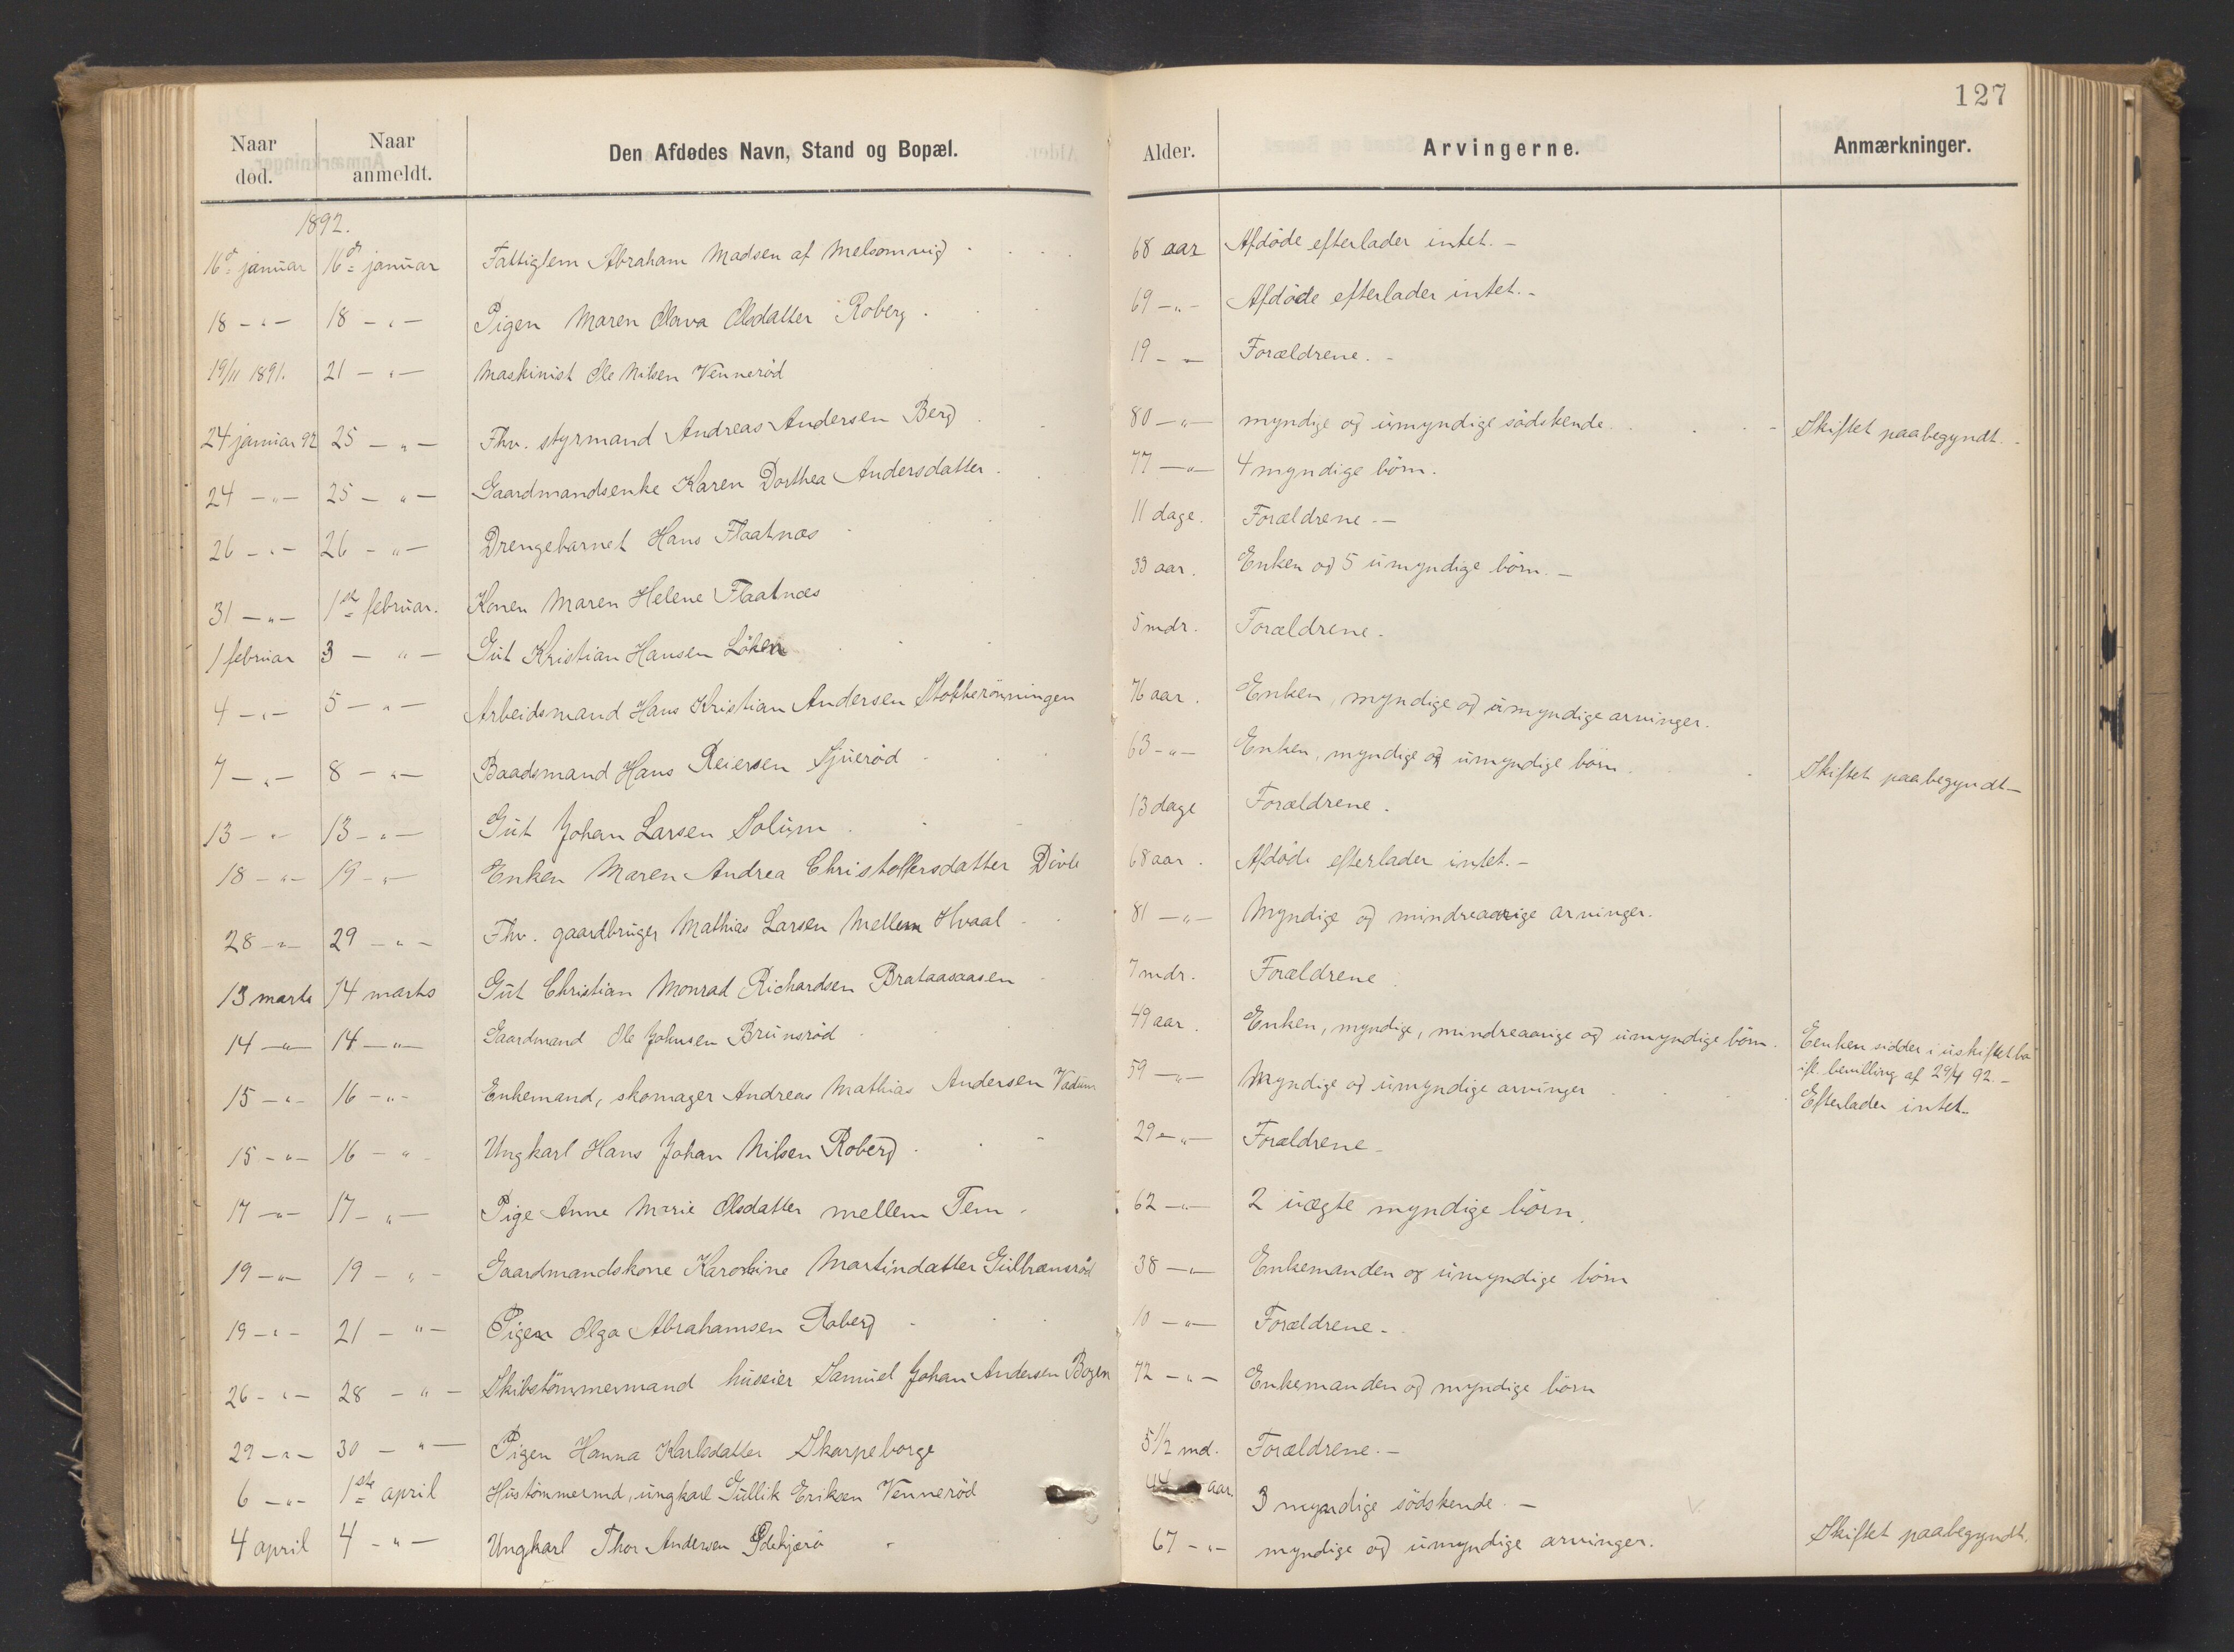 127
Naar død. Naar anmeldt. Den Afdødes Navn, Stand og Bopæl. Alder. Arvingerne. Anmærkninger.
1892.
16de januar 16de januar Fattiglem Abraham Madsen af Melsomvig 68 aar Afdöde efterlader intet. -
18 - " - 18 - " - Pigen Maren Olava Olsdatter Roberg. 69 - " - Afdöde efterlader intet. -
19/11 1891. 21 - " - Maskinist Ole Nilsen Venneröd 19 - " - Forældrene. -
24 januar 92 25 - " - Fhv. styrmand Andreas Andersen Berg 80 - " - myndige og umyndige södskende. Skiftet paabegyndt. -
24 - " - 25 - " - Gaardmandsenke Karen Dorthea Andersdatter. 77 - " - 4 myndige börn.
26 - " - 26 - " - Drengebarnet Hans Flaatnæs 11 dage. Forældrene. -
31 - " - 1ste februar. Konen Maren Helene Flaatnæs 33 aar. Enken og 5 umyndige börn. -
1 februar 3 - " - Gut Kristian Hansen Löken 5 mdr. Forældrene.
4 - " - 5 - " - Arbeidsmand Hans Kristian Andersen Stokkerönningen 76 aar. Enken, myndige og umyndige arvinger.
7 - " - 8 - " - Baadsmand Hans Reiersen Sjueröd 63 - " - Enken, myndige og umyndige börn. Skiftet paabegyndt -
13 - " - 13 - " - Gut Johan Larsen Solum 13 dage Forældrene.
18 - " - 19 - " - Enken Maren Andrea Christoffersdatter Døvle 68 aar. Afdöde efterlader intet. -
28 - " - 29 - " - Fhv. gaardbruger Mathias Larsen Mellem Hvaal 81 - " - Myndige og mindreaarige arvinger.
13 marts 14 marts Gut Christian Monrad Richardsen Brataasaasen 7 mdr. Forældrene
14 - " - 14 - " - Gaardmand Ole Johnsen Brunsröd 49 aar. Enken, myndige, mindreaarige og umyndige börn. Eenken sidder i uskiftet bo
ifl. bevilling af 29/4 92. -
15 - " - 16 - " - Enkemand, skomager Andreas Mathias Andersen Vadum 59 - " - Myndige og umyndige arvinger Efterlader intet.
15 - " - 16 - " - Ungkarl Hans Johan Nilsen Roberg. 29 - " - Forældrene -
17 - " - 17 - " - Pige Anne Marie Olsdatter mellem Tem. 62 - " - 2 uægte myndige börn.
19 - " - 19 - " - Gaardmandskone Karoline Martindatter Gulbransröd 38 - " - Enkemanden og umyndige börn
19 - " - 21 - " - Pigen Olga Abrahamsen Roberg 10 - " - Forældrene -
26 - " - 28 - " - Skibstömmermand huseier Samuel Johan Andersen Bogen 72 - " - Enkemanden og myndige börn
29 - " - 30 - " - Pigen Hanna Karlsdatter Skarpeborge 5 1/2 md. Forældrene. -
6 - " - 1ste april Hustömmermd, ungkarl Gullik Eriksen Venneröd 44 aar. 3 myndige södskende. -
4 april 4 - " - Ungkarl Thor Andersen 67 - " - myndige og umyndige arvinger. Skiftet paabegyndt.